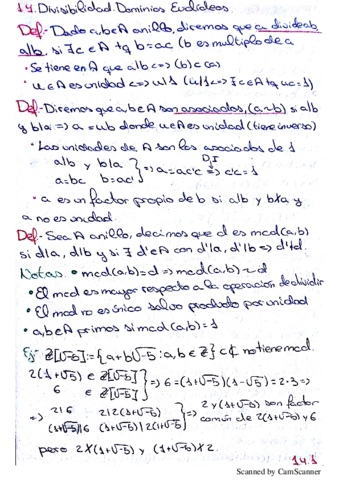 14. Divisibilidad. Dominios Euclídeos.
Def.- Dado a,b∈A anillo, diremos que a divide a b,
a|b, si ∃c∈A tq b=ac (b es multiplo de a
· Se tiene en A que a|b <=> (b) ⊂ (a)
· u∈A es unidad <=> u|1 (u|1 <=> ∃c∈A tq uc=1)
Def.- Diremos que a,b∈A son asociados, (a~b) si a|b
y b|a => a=ub donde u∈A es unidad (tiene inverso)
· Las unidades de A son los asociados de 1
a|b y b|a D.I
a=bc b=ac' } => a=ac'c => c'c=1
· a es un factor propio de b si a|b y b∤a y
a no es unidad.
Def.- Sea A anillo, decimos que d es mcd(a,b)
si d|a, d|b y si ∃ d'∈A con d'|a, d'|b => d'|d.
Notas. · mcd(a,b)=d => mcd(a,b)~d
· El mcd es mayor respecto a la operación de dividir
· El mcd no es único salvo producto por unidad
· a,b∈A primos si mcd(a,b)=1
Ej- Z[√-5]:={a+b√-5 : a,b∈Z} ⊂ ₵ no tiene mcd.
2(1+√-5) ∈ Z[√-5]
6 ∈ Z[√-5] } => 6=(1+√-5)(1-√-5)=2·3 =>
=> 2|6 2|2(1+√-5)
(1+√-5)|6 (1+√-5)|2(1+√-5) } => 2 y (1+√-5) son factor
común de 2(1+√-5) y 6
pero 2∤(1+√-5) y (1+√-5)∤2.
14.1
Scanned by CamScanner